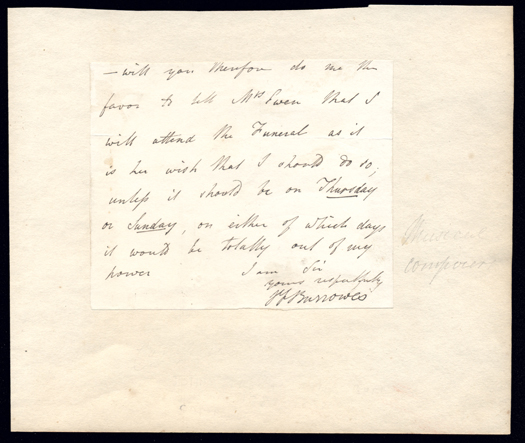 — will you therefore do me the
favor to tell Mrs Ewen that I
will attend the Funeral as it
is her wish that I should do so,
unless it should be on Thursday
or Sunday, on either of which days
it would be totally out of my
power I am Sir
yours respectfully
JF Burrowes
Musical
composer